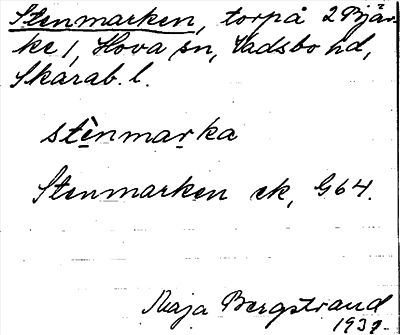 Stenmarken, torp å 2 Bjär-
ke /, Hova sn, Vadsbo hd,
Skarab. l.
stènmarka
Stenmarken ek, G64.
Maja Bergstrand